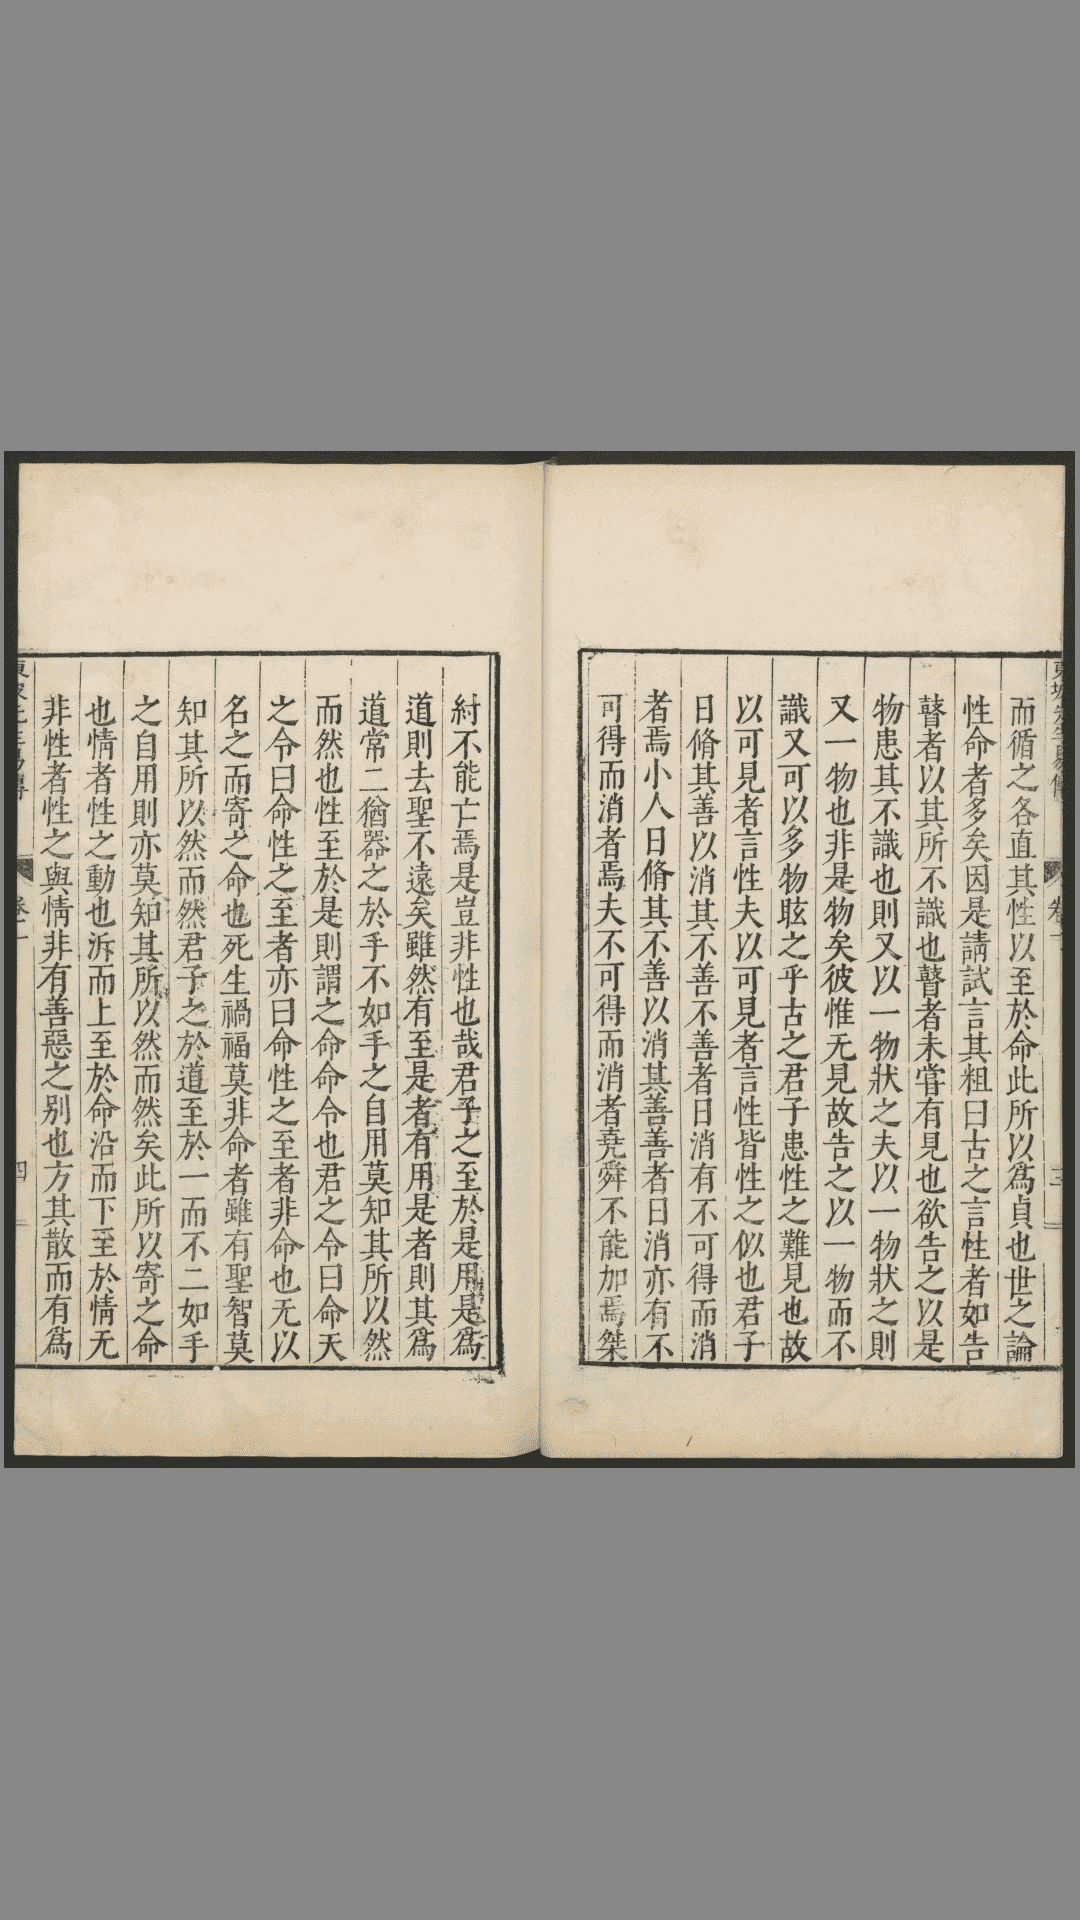 東坡先生易傳
卷一
三
而循之各直其性以至於命此所以爲貞也世之論
性命者多矣因是請試言其粗曰古之言性者如告
瞽者以其所不識也瞽者未嘗有見也欲告之以是
物患其不識也則又以一物狀之夫以一物狀之則
又一物也非是物矣彼惟无見故告之以一物而不
識又可以多物眩之乎古之君子患性之難見也故
以可見者言性夫以可見者言性皆性之似也君子
日脩其善以消其不善不善者日消有不可得而消
者焉小人日脩其不善以消其善善者日消亦有不
可得而消者焉夫不可得而消者堯舜不能加焉桀
紂不能亡焉是豈非性也哉君子之至於是用是爲
道則去聖不遠矣雖然有至是者有用是者則其爲
道常二猶器之於手不如手之自用莫知其所以然
而然也性至於是則謂之命命令也君之令曰命天
之令曰命性之至者亦曰命性之至者非命也无以
名之而寄之命也死生禍福莫非命者雖有聖智莫
知其所以然而然君子之於道至於一而不二如手
之自用則亦莫知其所以然而然矣此所以寄之命
也情者性之動也泝而上至於命沿而下至於情无
非性者性之與情非有善惡之别也方其散而有爲
四